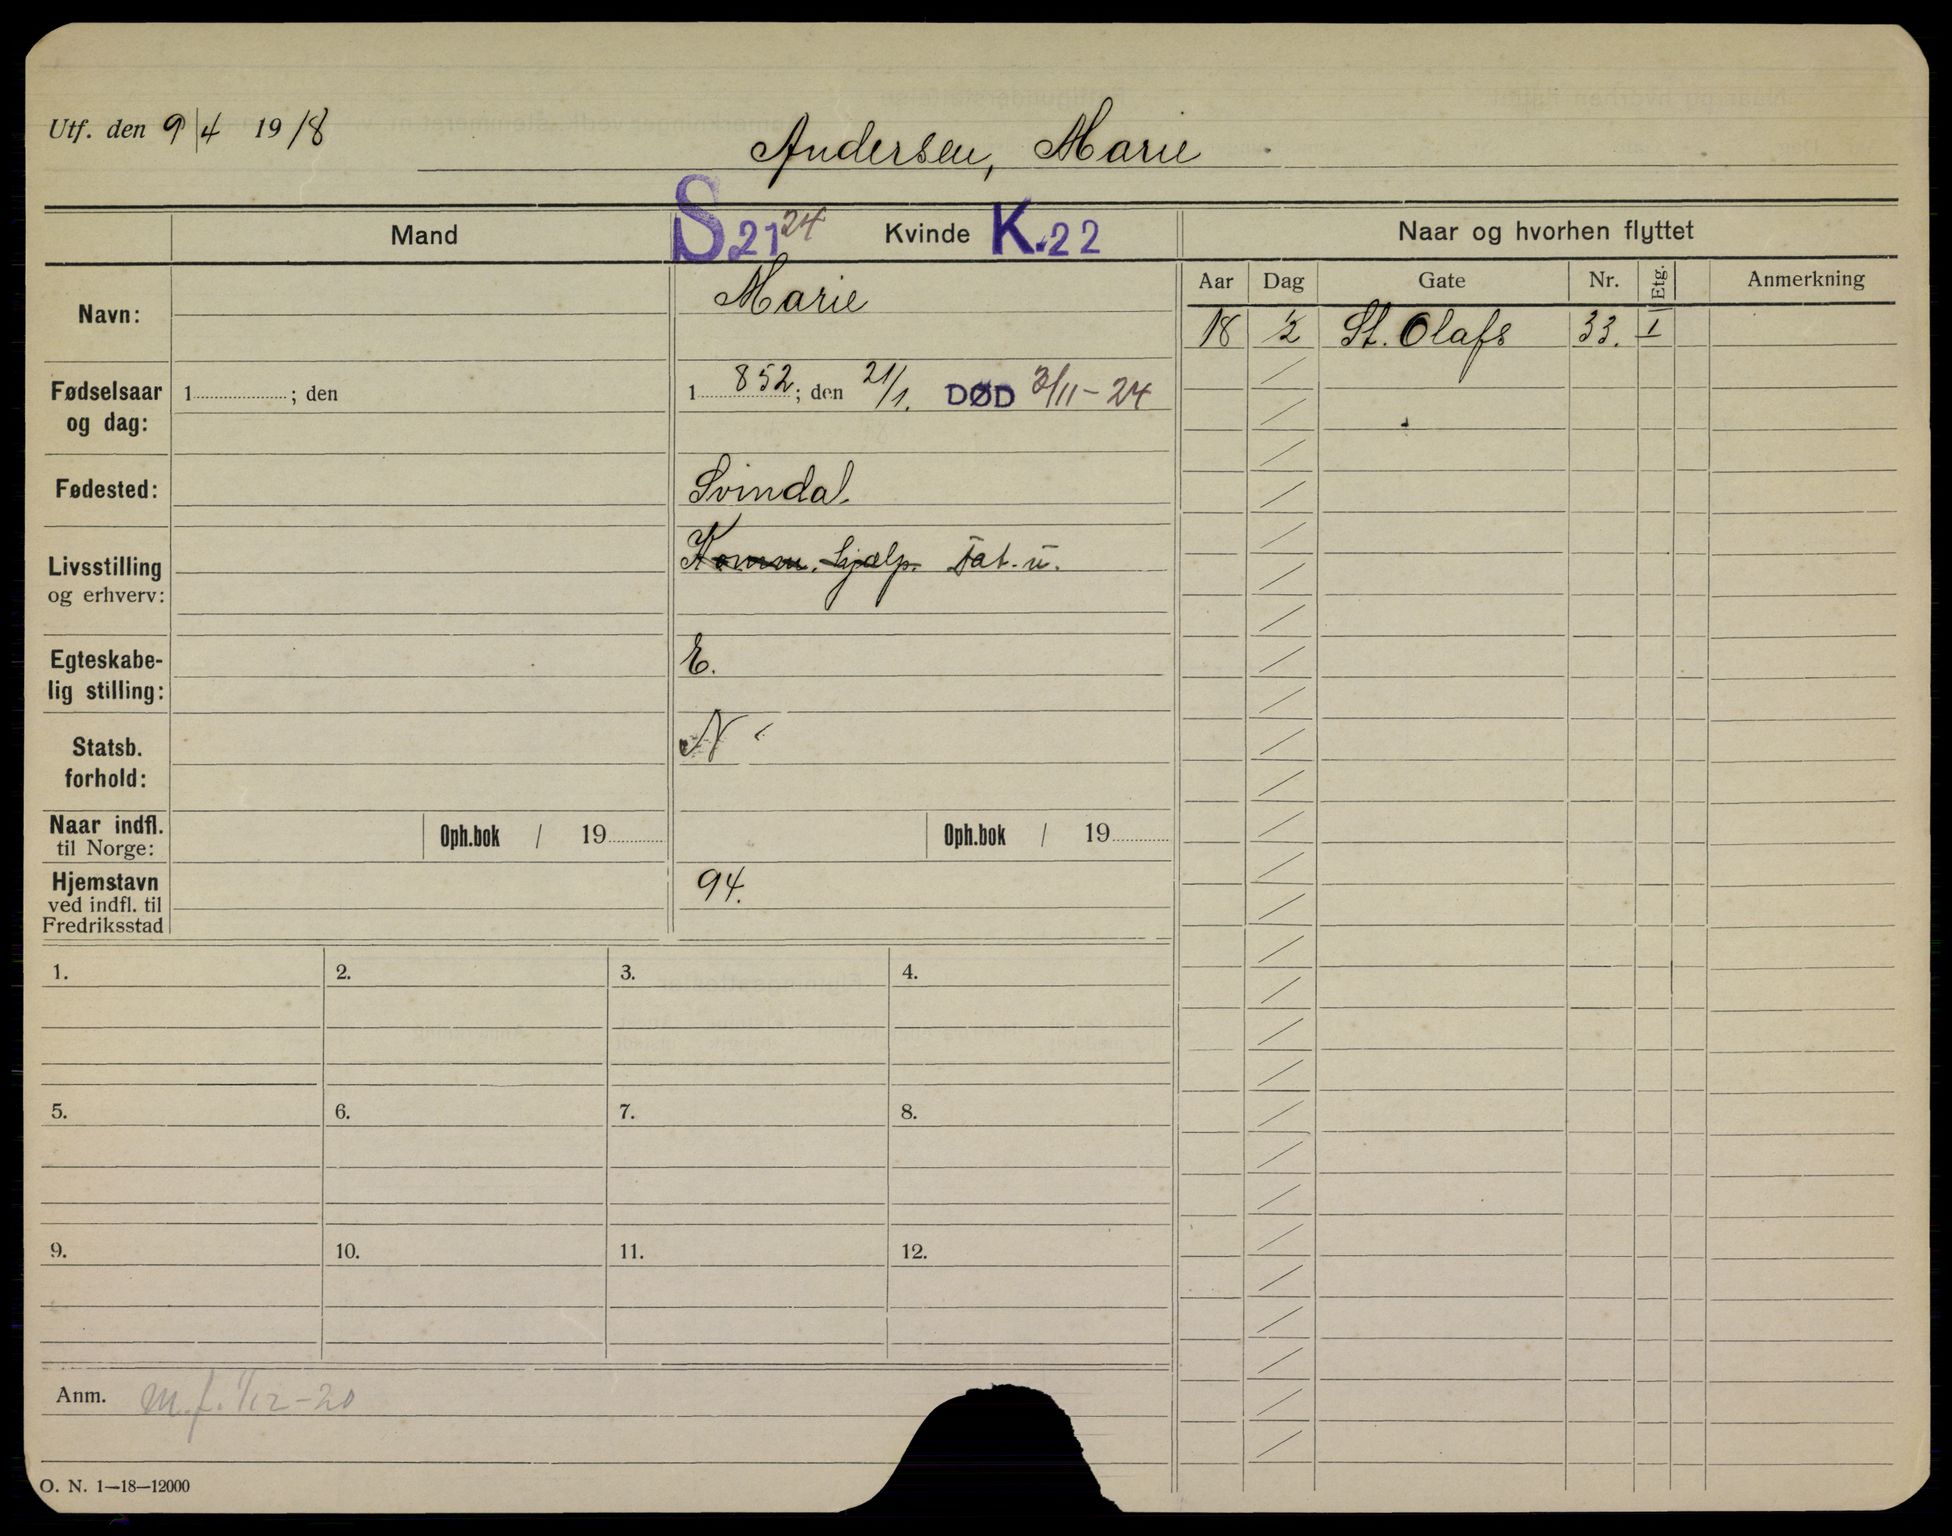 Utf. den 9/4 1918
Andersen, Marie
Mand
S 21 24 Kvinde K. 22
Naar og hvorhen flyttet
Aar Dag Gate Nr. Etg. Anmerkning
18 1/2 St. Olafs 33. I
Navn: Marie
Fødselsaar
og dag: 1 ; den
1 852; den 21/1. DØD 3/11-24
Fødested: Svindal.
Livsstilling
og erhverv: Komm. hjælp. Fat. u.
Egteskabe-
lig stilling: E.
Statsb.
forhold: N
Naar indfl.
til Norge: Oph.bok / 19 Oph.bok / 19
Hjemstavn
ved indfl. til
Fredriksstad 94.
1. 2. 3. 4.
5. 6. 7. 8.
9. 10. 11. 12.
Anm. M.f. 1/12-20
O. N. 1—18—12000